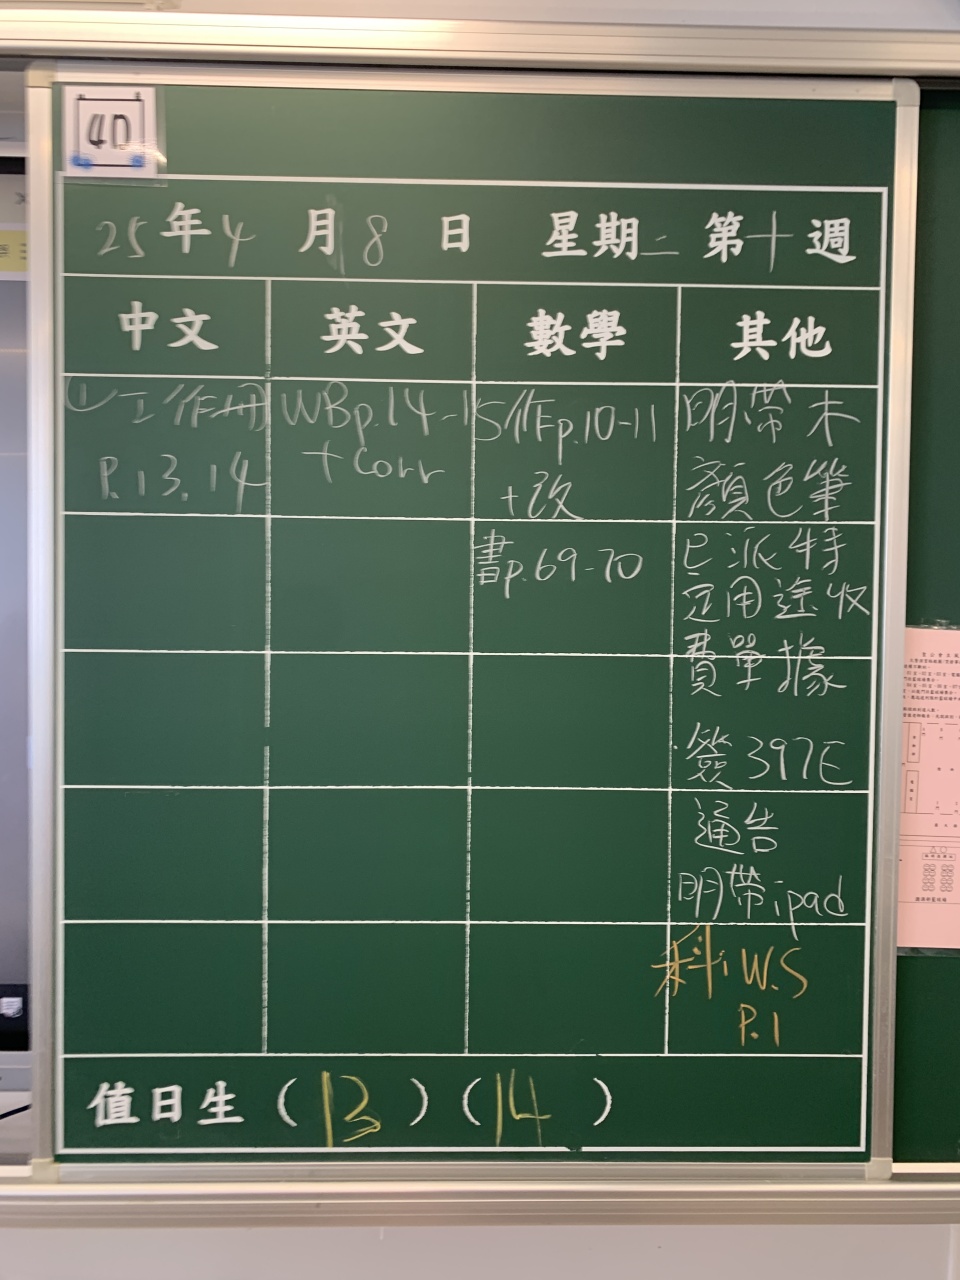 4D
25年4月8日 星期二 第十週
中文 英文 數學 其他
① 工作冊
P.13.14
WBp.14-15
+ corr
作p.10-11
+改
書p.69-70
明帶木
顏色筆
已派特
定用途收
費單據
簽397E
通告
明帶ipad
科: W.S
P.1
值日生 (13) (14)